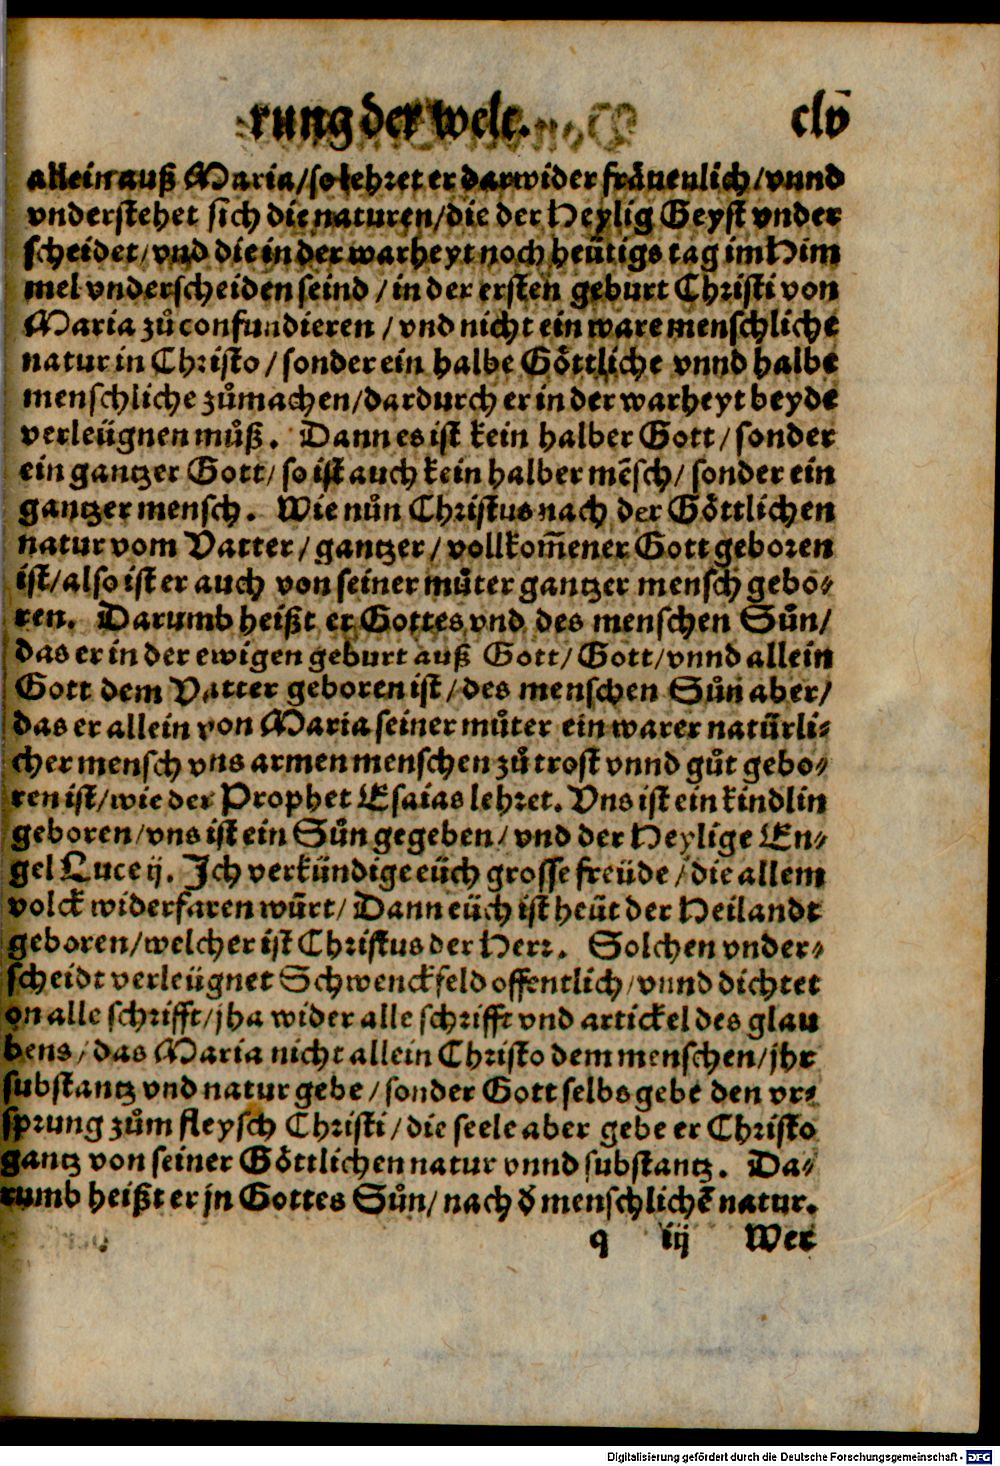 rung der welt. clv̄
allein auß Maria/ so lehret er darwider fräuenlich/ vnnd
vnderstehet sich die naturen/ die der Heylig Geyst vnder
scheidet/ vnd die in der warheyt noch heütigs tag im Him
mel vnderscheiden seind / in der ersten geburt Christi von
Maria zů confundieren / vnd nicht ein ware menschliche
natur in Christo / sonder ein halbe Göttliche vnnd halbe
menschliche zůmachen/ dardurch er in der warheyt beyde
verleügnen můß. Dann es ist kein halber Gott/ sonder
ein gantzer Gott/ so ist auch kein halber mēsch/ sonder ein
gantzer mensch. Wie nůn Christus nach der Göttlichen
natur vom Vatter/ gantzer/ vollkom̄ener Gott geboren
ist/ also ist er auch von seiner můter gantzer mensch gebo-
ren. Darumb heißt er Gottes vnd des menschen Sůn/
das er in der ewigen geburt auß Gott/ Gott/ vnnd allein
Gott dem Vatter geboren ist/ des menschen Sůn aber/
das er allein von Maria seiner můter ein warer natürli-
cher mensch vns armen menschen zů trost vnnd gůt gebo-
ren ist/ wie der Prophet Esaias lehret. Vns ist ein kindlin
geboren/ vns ist ein Sůn gegeben/ vnd der Heylige En-
gel Luce ij. Ich verkündige eüch grosse freüde/ die allem
volck widerfaren würt/ Dann eüch ist heüt der Heilandt
geboren/ welcher ist Christus der Herr. Solchen vnder-
scheidt verleügnet Schwenckfeld offentlich/ vnnd dichtet
on alle schrifft/ jha wider alle schrifft vnd artickel des glau
bens/ das Maria nicht allein Christo dem menschen/ jhr
substantz vnd natur gebe/ sonder Gott selbs gebe den vr-
sprung zům fleysch Christi/ die seele aber gebe er Christo
gantz von seiner Göttlichen natur vnnd substantz. Da-
rumb heißt er jn Gottes Sůn/ nach d̕ menschlichē natur.
q iij Wer
Digitalisierung gefördert durch die Deutsche Forschungsgemeinschaft - DFG